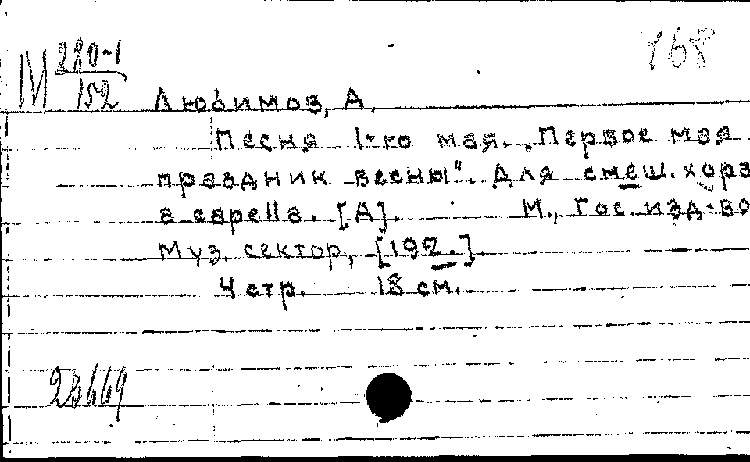 М 280-1
152
168
Любимов, А.
Песня 1-го мая. „Первое мая
праздник весны". Для смеш. хора
a capella. [А]. М., Гос. изд-во
Муз. сектор, [192 .]
4 стр. 18 см.
23669